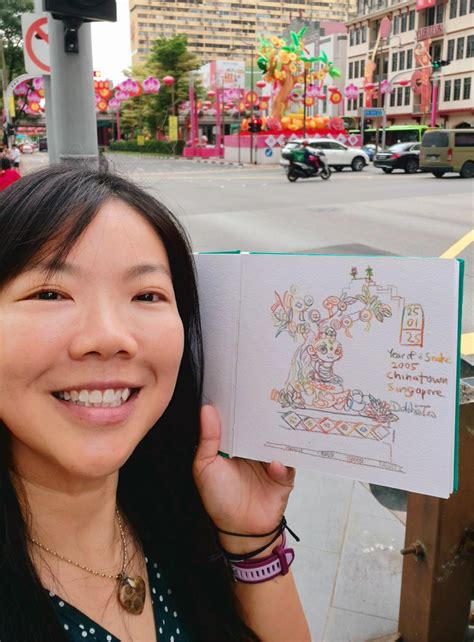 25
01
25
Year of Snake
2005
Chinatown
Singapore